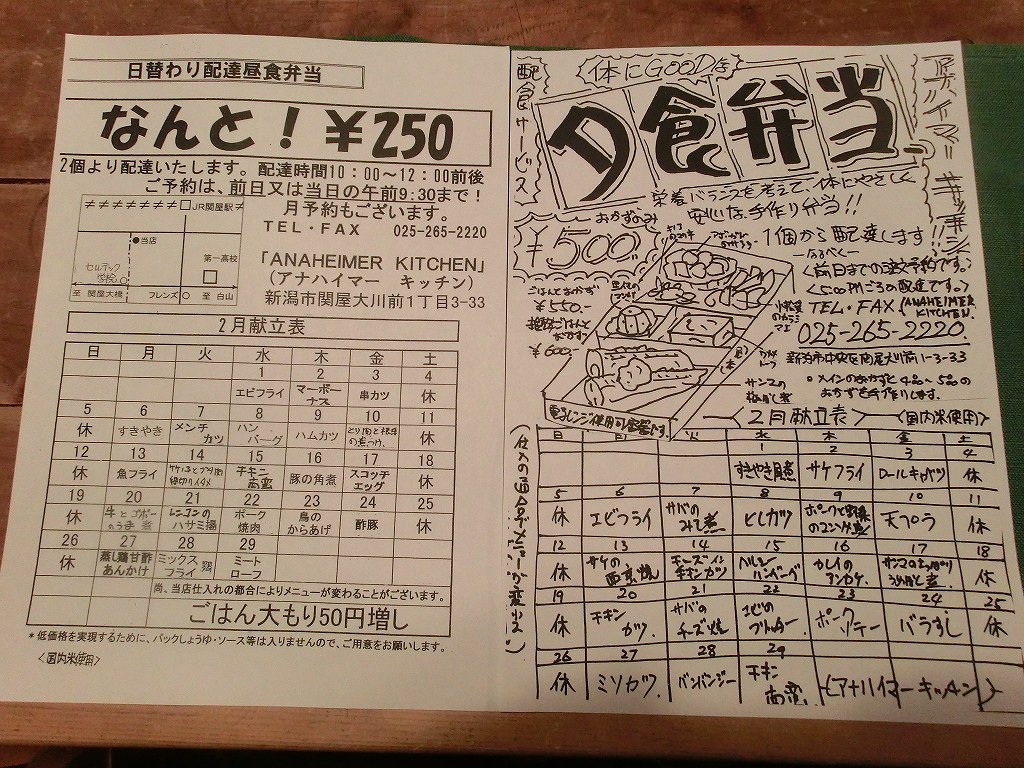 日替わり配達昼食弁当
なんと！￥250
2個より配達いたします。配達時間10：00～12：00前後
ご予約は、前日又は当日の午前9:30まで！
月予約もございます。
TEL・FAX 025-265-2220
「ANAHEIMER KITCHEN」
（アナハイマー キッチン）
新潟市関屋大川前1丁目3-33
JR関屋駅
●当店
第一高校
至 関屋大橋
フレンズ
至 白山
2月献立表
日 月 火 水 木 金 土
1 2 3 4
エビフライ マーボーナス 串カツ 休
5 6 7 8 9 10 11
休 すきやき メンチカツ ハンバーグ ハムカツ とり肉と根菜の煮つけ 休
12 13 14 15 16 17 18
休 魚フライ チキン南蛮 豚の角煮 スコッチエッグ 休
19 20 21 22 23 24 25
休 牛とゴボーのうま煮 レンコンのハサミ揚 ポーク焼肉 鳥のからあげ 酢豚 休
26 27 28 29
休 蒸し鶏甘酢あんかけ ミックスフライ ミートローフ
尚、当店仕入れの都合によりメニューが変わることがございます。
ごはん大もり50円増し
*低価格を実現するために、パックしょうゆ・ソース等は入りませんので、ご用意をお願いします。
<国内米使用>
配食サービス
体にGOODな
夕食弁当
アナハイマーキッチン
栄養バランスを考えて、体にやさしく
安心な手作り弁当!!
おかずのみ
￥500
1個から配達します!!
なるべく
前日までの注文予約です。
TEL・FAX (ANAHEIMER KITCHEN)
025-265-2220
新潟市中央区関屋大川前1-3-33
ごはんとおかず
￥550-
￥600-
サンマの梅ぼし煮
○メインのおかずと4品～5品のおかずを手作りします。
電子レンジ使用可容器です。
2月献立表 <国内米使用>
日 月 火 水 木 金 土
1 2 3 4
すきやき風煮 サケフライ ロールキャベツ 休
5 6 7 8 9 10 11
休 エビフライ サバのみそ煮 ヒレカツ ポークと野菜のコンソメ煮 天プラ 休
12 13 14 15 16 17 18
休 サケの西京焼 チーズインチキンカツ ヘルシーハンバーグ カレイのアンカケ 休
19 20 21 22 23 24 25
休 チキンカツ サバのチーズ焼 エビのフリッター ポークソテー バラずし 休
26 27 28 29
休 ミソカツ バンバンジー チキン南蛮 アナハイマーキッチン